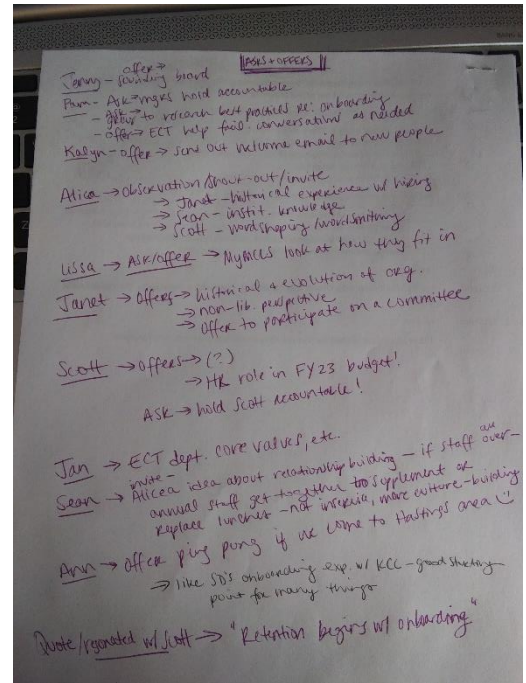 ASKS + OFFERS
Jenny - offer → sounding board
Pam - Ask → mgrs hold accountable
- ask → group to research best practices re: onboarding
- offer → ECT help facil. conversations as needed
Kalyn - offer → send out welcome email to new people
Alicea → observation/shout-out/invite
→ Janet - historical experience w/ hiring
→ Sean - instit. knowledge
→ Scott - wordshaping/wordsmithing
Lissa → Ask/offer → look at how they fit in
Janet → Offers → historical + evolution of org.
→ non-lib. perspective
→ Offer to participate on a committee
Scott → Offers → (?)
→ HR role in FY23 budget!
ASK → hold Scott accountable!
Jan → ECT dept. core values, etc.
Sean → invite - Alicea idea about relationship building - if staff over-
annual staff get together to supplement or
replace lunches - not inservice, more culture-building
Ann → offer ping pong if we come to Hastings area
→ like SD's onboarding exp. w/ KCC - good starting
point for many things
Quote/resonated w/ Scott → "Retention begins w/ onboarding"